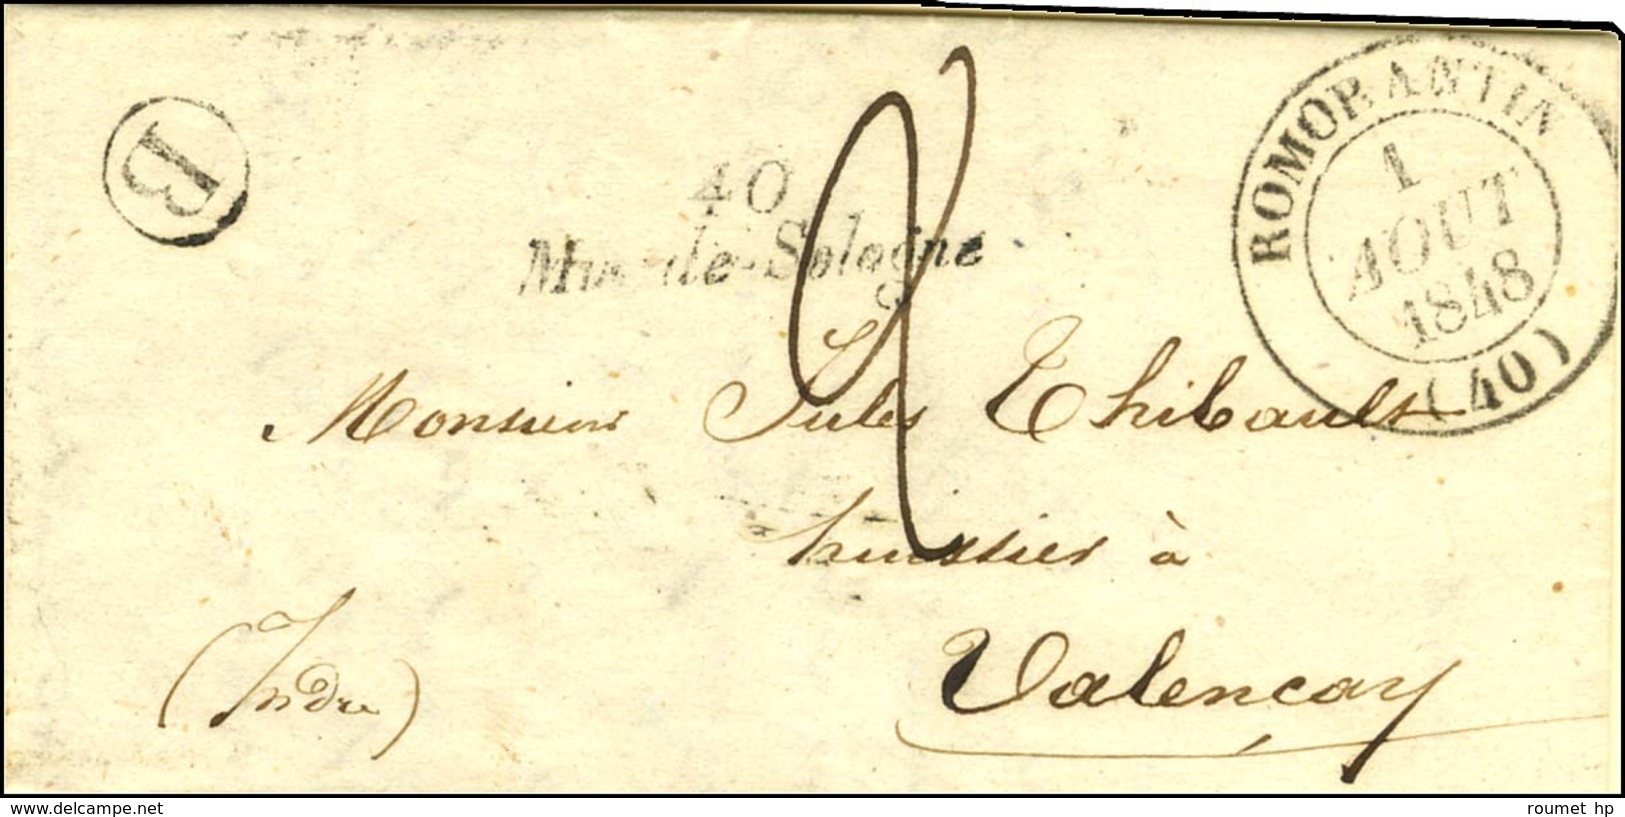 B
40
Mur-de-Sologne
2
ROMORANTIN
1
AOUT
1848
(40)
Monsieur Jules Thibault
huissier à
Valencay
(Indre)
www.delcampe.net
roumet hp